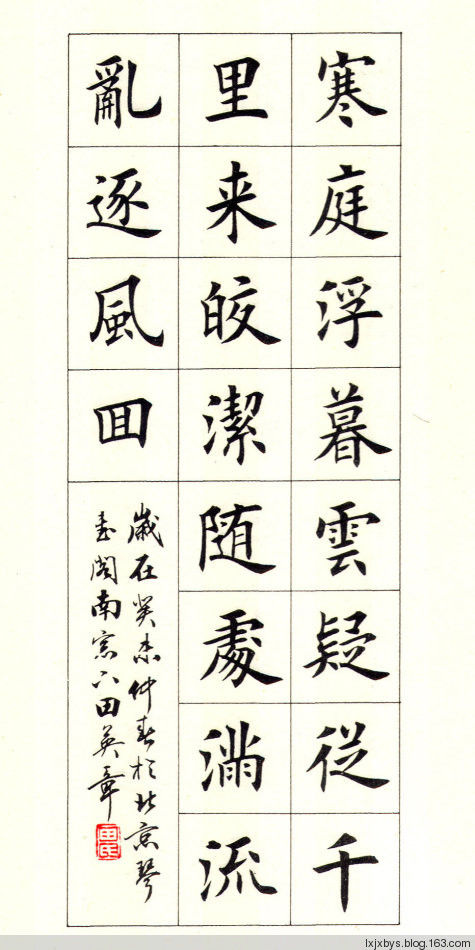 寒庭浮暮雲疑從千
里来皎潔随處滿流
亂逐風回
歲在癸未仲春於北京琴
書閣南窓下田英章
田氏
lxjxbys.blog.163.com